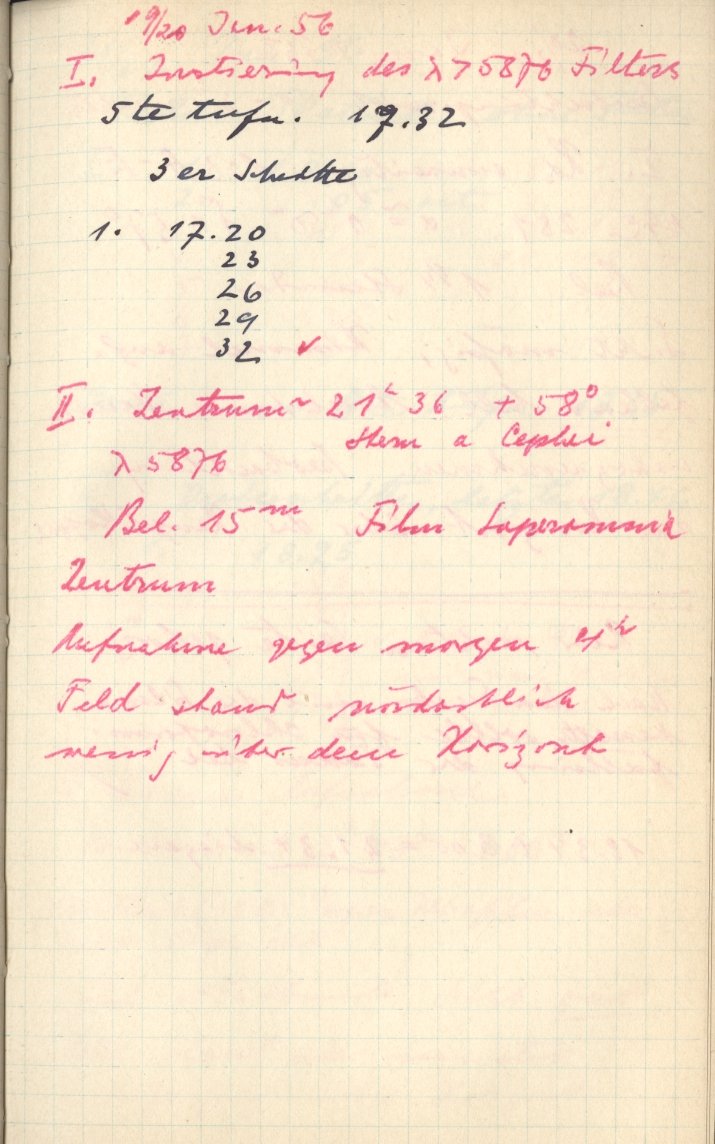 19/20 Jan. 56
I. Justierung des λ 5876 Filters
5te Aufn. 17.32
3er Schotte
1. 17.20
23
26
29
32 ✓
II. Zentrum 21ʰ 36 + 58°
Stern a Cephei
λ 5876
Bel. 15ᵐ Film
Zentrum
Aufnahme gegen morgen 4ʰ
Feld stand nordöstlich
wenig über dem Horizont